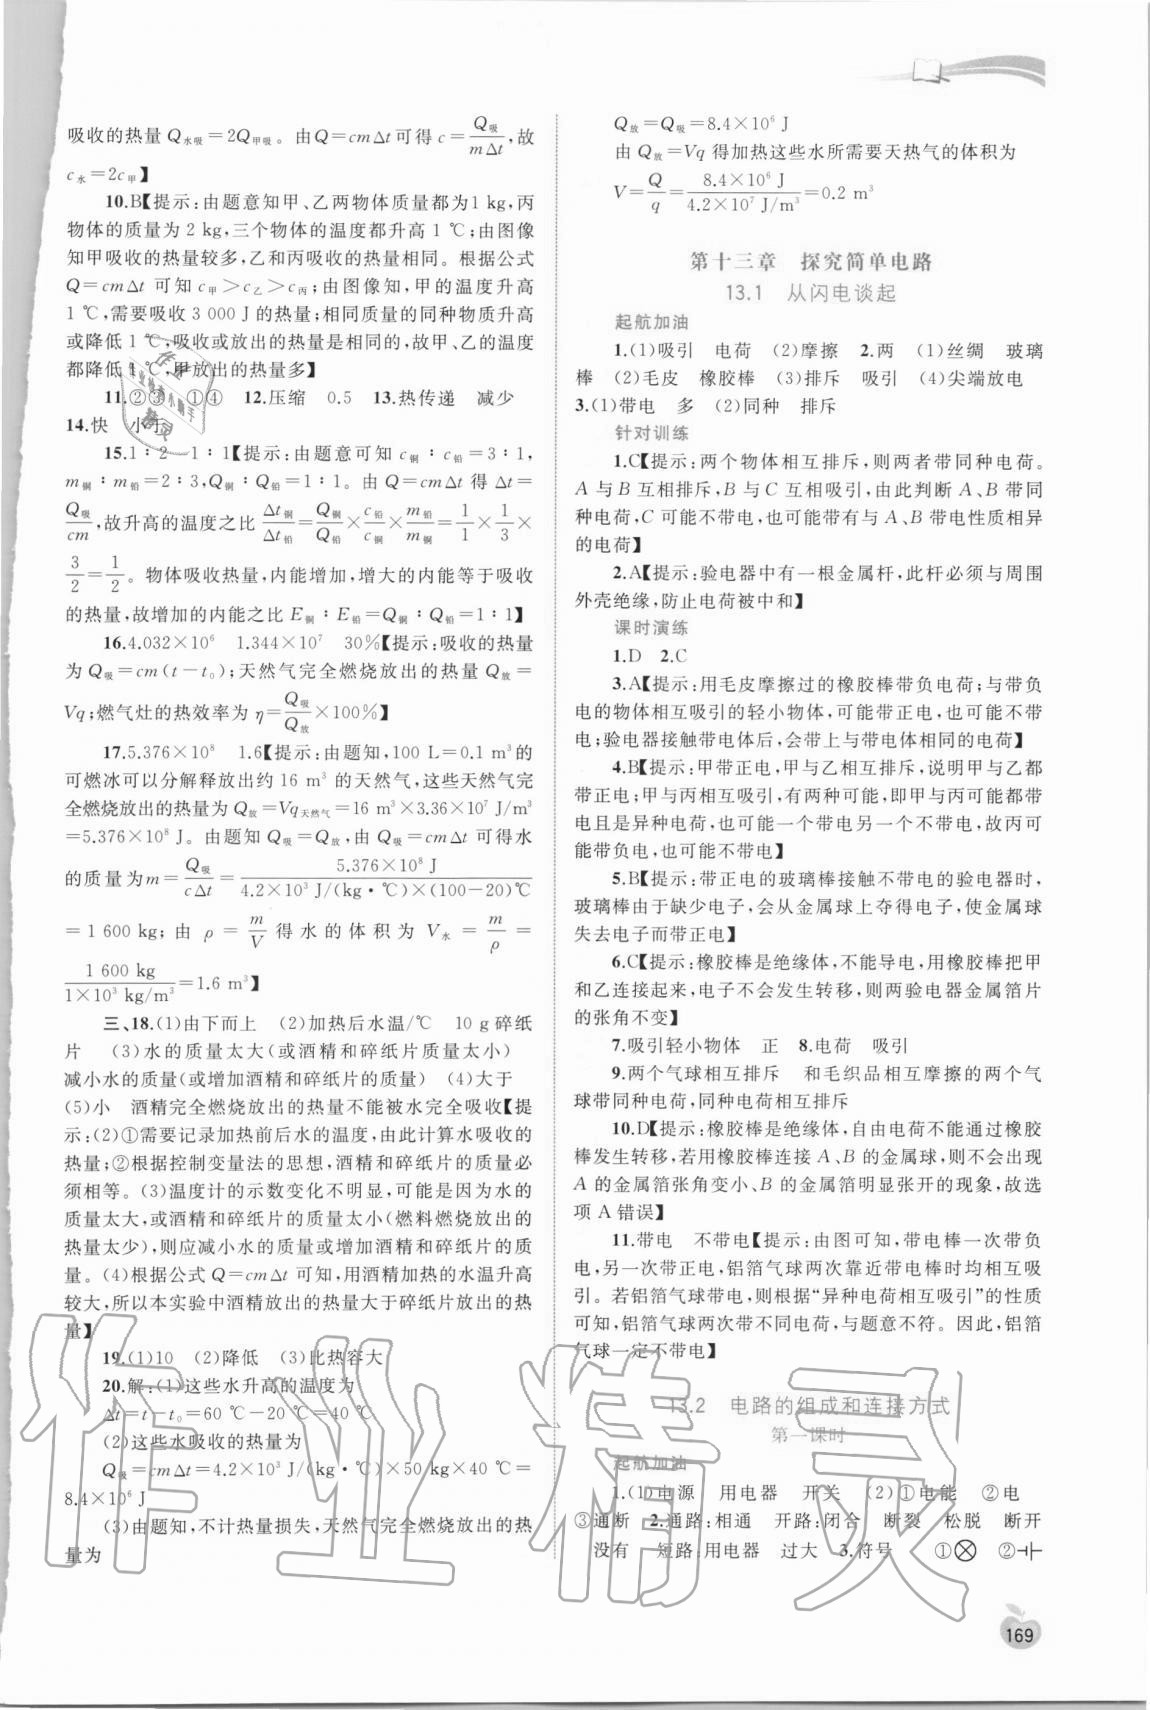 吸收的热量 Q水吸=2Q甲吸。由Q=cmΔt可得 c=Q吸/mΔt,故
c水=2c甲】
10.B【提示:由题意知甲、乙两物体质量都为1 kg,丙
物体的质量为 2 kg,三个物体的温度都升高 1 ℃;由图像
知甲吸收的热量较多,乙和丙吸收的热量相同。根据公式
Q=cmΔt 可知 c甲>c乙>c丙;由图像知,甲的温度升高
1 ℃,需要吸收 3 000 J 的热量;相同质量的同种物质升高
或降低 1 ℃,吸收或放出的热量是相同的,故甲、乙的温度
都降低 1 ℃,甲放出的热量多】
11.②③ ①④ 12.压缩 0.5 13.热传递 减少
14.快 小于
15.1∶2 1∶1【提示:由题意可知 c铜∶c铅=3∶1,
m铜∶m铅=2∶3,Q铜∶Q铅=1∶1。由 Q=cmΔt 得 Δt=
Q吸/cm,故升高的温度之比 Δt铜/Δt铅=Q铜/Q铅×c铅/c铜×m铅/m铜=1/1×1/3×
3/2=1/2。物体吸收热量,内能增加,增大的内能等于吸收
的热量,故增加的内能之比 E铜∶E铅=Q铜∶Q铅=1∶1】
16.4.032×10⁶ 1.344×10⁷ 30%【提示:吸收的热量
为 Q吸=cm(t-t₀);天然气完全燃烧放出的热量 Q放=
Vq;燃气灶的热效率为 η=Q吸/Q放×100%】
17.5.376×10⁸ 1.6【提示:由题知,100 L=0.1 m³的
可燃冰可以分解释放出约 16 m³ 的天然气,这些天然气完
全燃烧放出的热量为 Q放=Vq天然气=16 m³×3.36×10⁷ J/m³
=5.376×10⁸ J。由题知 Q吸=Q放,由 Q吸=cmΔt 可得水
的质量为m=Q吸/cΔt=5.376×10⁸ J/4.2×10³ J/(kg·℃)×(100-20)℃
=1 600 kg;由 ρ=m/V 得水的体积为 V水=m/ρ=
1 600 kg/1×10³ kg/m³=1.6 m³】
三、18.(1)由下而上 (2)加热后水温/℃ 10 g碎纸
片 (3)水的质量太大(或酒精和碎纸片质量太小)
减小水的质量(或增加酒精和碎纸片的质量) (4)大于
(5)小 酒精完全燃烧放出的热量不能被水完全吸收【提
示:(2)①需要记录加热前后水的温度,由此计算水吸收的
热量;②根据控制变量法的思想,酒精和碎纸片的质量必
须相等。(3)温度计的示数变化不明显,可能是因为水的
质量太大,或酒精和碎纸片的质量太小(燃料燃烧放出的
热量太少),则应减小水的质量或增加酒精和碎纸片的质
量。(4)根据公式 Q=cmΔt 可知,用酒精加热的水温升高
较大,所以本实验中酒精放出的热量大于碎纸片放出的热
量】
19.(1)10 (2)降低 (3)比热容大
20.解:(1)这些水升高的温度为
Δt=t-t₀=60 ℃-20 ℃=40 ℃
(2)这些水吸收的热量为
Q吸=cmΔt=4.2×10³ J/(kg·℃)×50 kg×40 ℃=
8.4×10⁶ J
(3)由题知,不计热量损失,天然气完全燃烧放出的热
量为
Q放=Q吸=8.4×10⁶ J
由 Q放=Vq 得加热这些水所需要天然气的体积为
V=Q/q=8.4×10⁶ J/4.2×10⁷ J/m³=0.2 m³
第十三章 探究简单电路
13.1 从闪电谈起
起航加油
1.(1)吸引 电荷 (2)摩擦 2.两 (1)丝绸 玻璃
棒 (2)毛皮 橡胶棒 (3)排斥 吸引 (4)尖端放电
3.(1)带电 多 (2)同种 排斥
针对训练
1.C【提示:两个物体相互排斥,则两者带同种电荷。
A 与 B 互相排斥,B 与 C 互相吸引,由此判断 A、B 带同
种电荷,C 可能不带电,也可能带有与 A、B 带电性质相异
的电荷】
2.A【提示:验电器中有一根金属杆,此杆必须与周围
外壳绝缘,防止电荷被中和】
课时演练
1.D 2.C
3.A【提示:用毛皮摩擦过的橡胶棒带负电荷;与带负
电的物体相互吸引的轻小物体,可能带正电,也可能不带
电;验电器接触带电体后,会带上与带电体相同的电荷】
4.B【提示:甲带正电,甲与乙相互排斥,说明甲与乙都
带正电;甲与丙相互吸引,有两种可能,即甲与丙可能都带
电且是异种电荷,也可能一个带电另一个不带电,故丙可
能带负电,也可能不带电】
5.B【提示:带正电的玻璃棒接触不带电的验电器时,
玻璃棒由于缺少电子,会从金属球上夺得电子,使金属球
失去电子而带正电】
6.C【提示:橡胶棒是绝缘体,不能导电,用橡胶棒把甲
和乙连接起来,电子不会发生转移,则两验电器金属箔片
的张角不变】
7.吸引轻小物体 正 8.电荷 吸引
9.两个气球相互排斥 和毛织品相互摩擦的两个气
球带同种电荷,同种电荷相互排斥
10.D【提示:橡胶棒是绝缘体,自由电荷不能通过橡胶
棒发生转移,若用橡胶棒连接 A、B 的金属球,则不会出现
A 的金属箔张角变小、B 的金属箔明显张开的现象,故选
项 A 错误】
11.带电 不带电【提示:由图可知,带电棒一次带负
电,另一次带正电,铝箔气球两次靠近带电棒时均相互吸
引。若铝箔气球带电,则根据“异种电荷相互吸引”的性质
可知,铝箔气球两次带不同电荷,与题意不符。因此,铝箔
气球一定不带电】
13.2 电路的组成和连接方式
第一课时
起航加油
1.(1)电源 用电器 开关 (2)①电能 ②电
③通断 2.通路:相通 开路:闭合 断裂 松脱 断开
没有 短路:用电器 过大 3.符号 ① ②
169
作业精灵